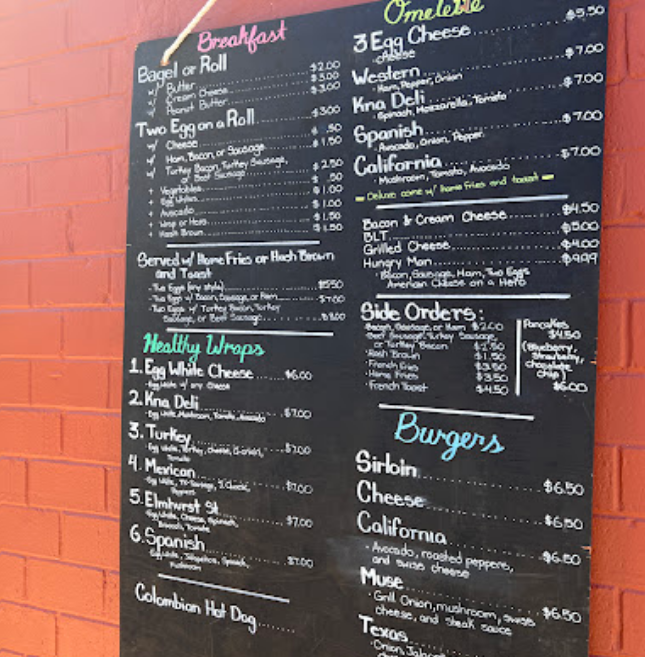 Breakfast
Bagel or Roll
w/ Butter $2.00
w/ Cream Cheese $3.00
w/ Peanut Butter $3.00
Two Egg on a Roll $3.00
w/ Cheese $.50
w/ Ham, Bacon, or Sausage $1.50
w/ Turkey Bacon, Turkey Sausage,
or Beef Sausage $2.50
+ Vegetables $.50
+ Egg Whites $1.00
+ Avocado $1.00
+ Wrap or Hero $1.50
+ Hash Brown $1.50
Served w/ Home Fries or Hash Brown
and Toast
- Two Eggs (any style) $5.50
- Two Eggs w/ Bacon, Sausage, or Ham $7.00
- Two Eggs w/ Turkey Bacon, Turkey
Sausage, or Beef Sausage $8.00
Healthy Wraps
1. Egg White Cheese $6.00
Egg White w/ any Cheese
2. Kna Deli $7.00
Egg White, Mushroom, Tomato, Avocado
3. Turkey $7.00
Egg White, Turkey, Cheese,
Tomato
4. Mexican $7.00
Egg White,
Peppers
5. Elmhurst St $7.00
Egg White, Cheese, Spinach,
Broccoli, Tomato
6. Spanish $7.00
Egg White, Jalapeños, Spinach,
Mushroom
Colombian Hot Dog
Omelette
3 Egg Cheese $5.50
Cheese
Western $7.00
- Ham, Pepper, Onion
Kna Deli $7.00
- Spinach, Mozzarella, Tomato
Spanish $7.00
- Avocado, Onion, Pepper
California $7.00
- Mushroom, Tomato, Avocado
- Deluxe come w/ home fries and toast -
Bacon & Cream Cheese $4.50
BLT $5.00
Grilled Cheese $4.00
Hungry Man $9.99
- Bacon, Sausage, Ham, Two Eggs
American Cheese on a Hero
Side Orders:
- Bacon, Sausage, or Ham $2.00
- Beef Sausage, Turkey Sausage
or Turkey Bacon $2.50
- Hash Brown $1.50
- French Fries $3.50
- Home Fries $3.50
- French Toast $4.50
Pancakes
$4.50
(Blueberry,
Strawberry,
chocolate
chip)
$6.00
Burgers
Sirloin $6.50
Cheese $6.50
California $6.50
- Avocado, roasted peppers,
and swiss cheese
Muse $6.50
- Grill Onion, mushroom, swiss
cheese, and steak sauce
Texas
- Onion,